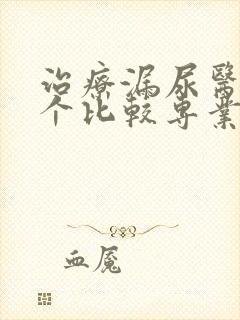 治療漏尿醫
个比較專業
血魘